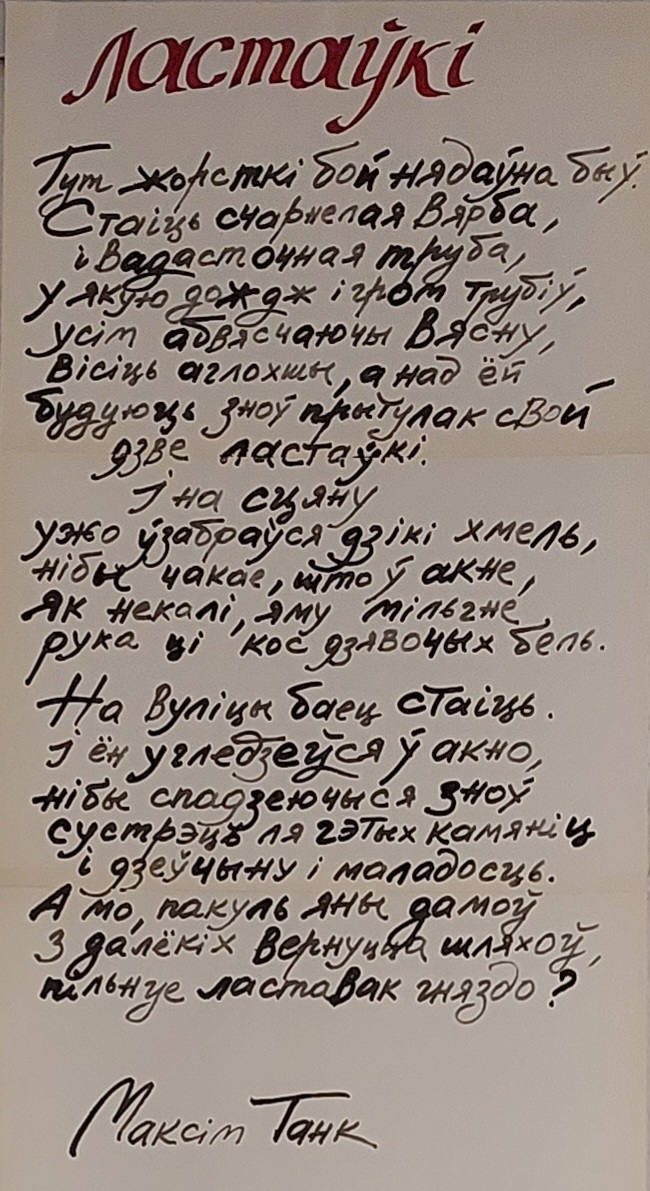 Ластаўкі
Тут жорсткі бой нядаўна быў.
Стаіць счарнелая вярба,
і вадасточная труба,
у якую дождж і гром трубіў,
усім абвясчаючы вясну,
вісіць аглохшы, а над ёй
будуюць зноў прытулак свой
дзве ластаўкі.
І на сцяну
ужо ўзабраўся дзікі хмель,
нібы чакае, што ў акне,
як некалі, яму мільгне
рука ці кос дзявочых бель.
На вуліцы баец стаіць.
І ён угледзеўся ў акно,
нібы спадзеючыся зноў
сустрэць ля гэтых камяніц
і дзеўчыну і маладосць.
А мо, пакуль яны дамоў
з далёкіх вернуцца шляхоў,
пільнуе ластавак гняздо?
Максім Танк